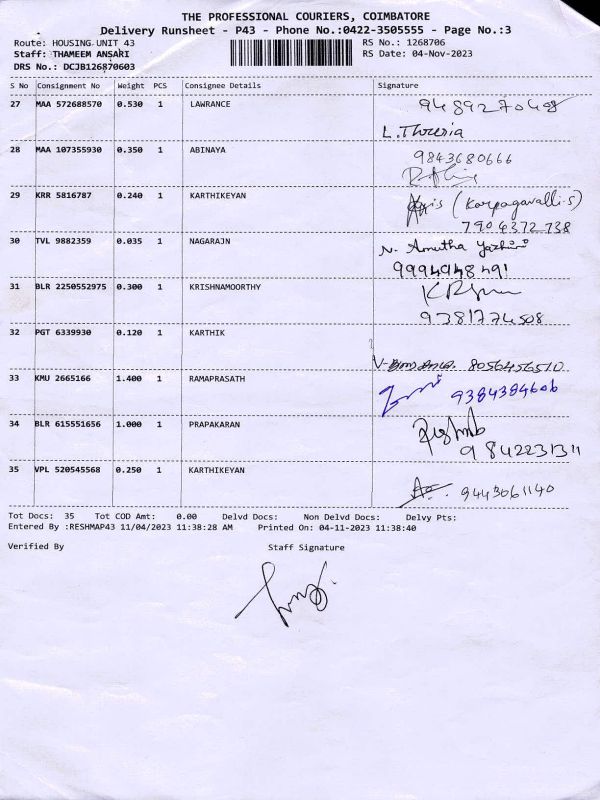 THE PROFESSIONAL COURIERS, COIMBATORE
Delivery Runsheet - P43 - Phone No.:0422-3505555 - Page No.:3
Route: HOUSING UNIT 43 RS No.: 1268706
Staff: THAMEEM ANSARI RS Date: 04-Nov-2023
DRS No.: DCJB126870603
S No Consignment No Weight PCS Consignee Details Signature
27 MAA 572688570 0.530 1 LAWRANCE 9489270408
L. Theresia
28 MAA 107355930 0.350 1 ABINAYA 9843680666
29 KRR 5816787 0.240 1 KARTHIKEYAN (Karpagavalli.S)
7904372738
30 TVL 9882359 0.035 1 NAGARAJN N. Amutha Yazhini
9994948491
31 BLR 2250552975 0.300 1 KRISHNAMOORTHY
9381774508
32 PGT 6339930 0.120 1 KARTHIK
8056456510
33 KMU 2665166 1.400 1 RAMAPRASATH 9384384606
34 BLR 615551656 1.000 1 PRAPAKARAN
9842231311
35 VPL 520545568 0.250 1 KARTHIKEYAN
9443061140
Tot Docs: 35 Tot COD Amt: 0.00 Delvd Docs: Non Delvd Docs: Delvy Pts:
Entered By :RESHMAP43 11/04/2023 11:38:28 AM Printed On: 04-11-2023 11:38:40
Verified By Staff Signature